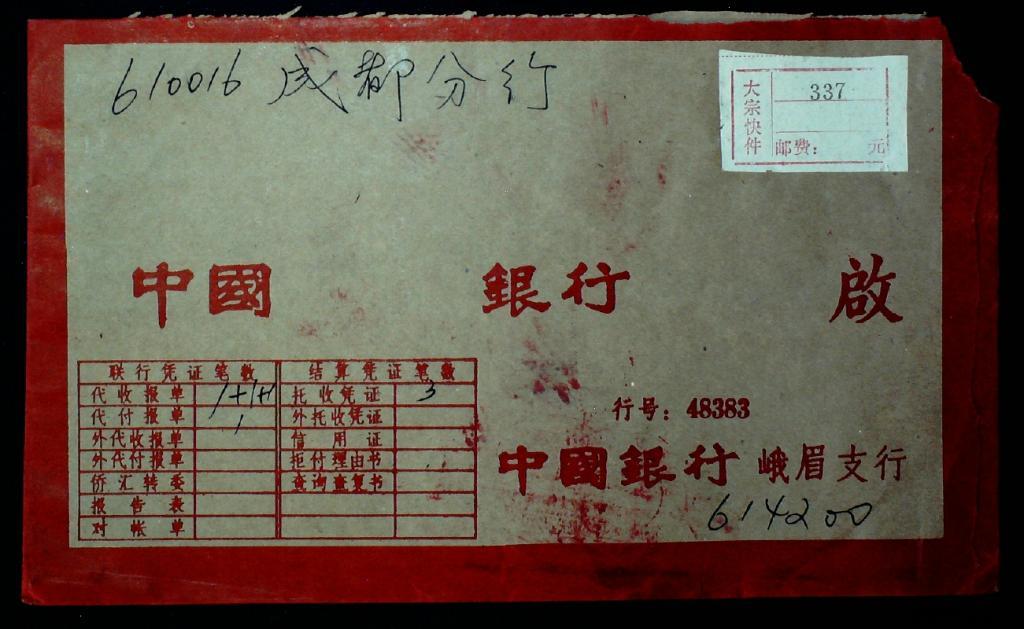 610016 成都分行
大宗快件
337
邮费： 元
中國 銀行 啟
联行凭证笔数 结算凭证笔数
代收报单 1+1+1 托收凭证 3
代付报单 1 外托收凭证
外代收报单 信用证
外代付报单 拒付理由书
侨汇转委 查询查复书
报告表
对帐单
行号：48383
中國銀行 峨眉支行
614200